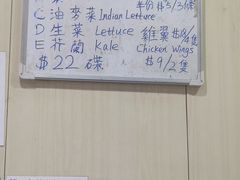 C 油麥菜 Indian Lettuce
D 生菜 Lettuce 雞翼 $18/4隻
E 芥蘭 Kale Chicken Wings
$22 碟 $9/2隻